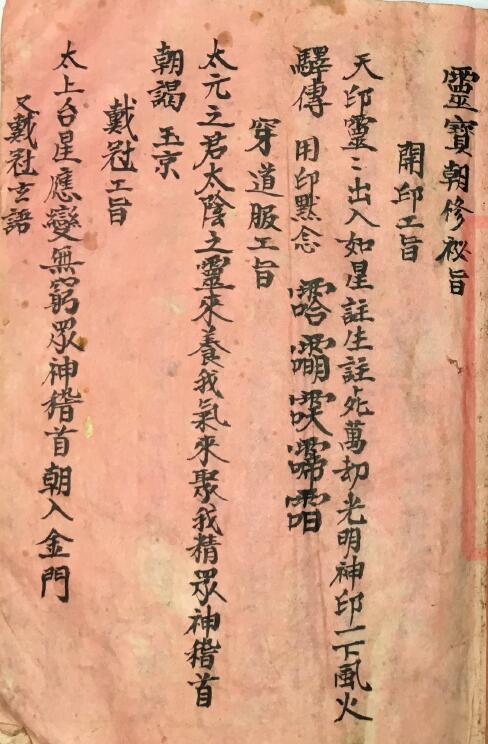 靈寶朝修祕旨
開印工旨
天印靈〻出入如星註生註死萬劫光明神印一下風火
驛傳 用印默念
穿道服工旨
太元之君太陰之靈來養我氣來聚我精眾神稽首
朝謁玉京
戴冠工旨
太上台星應變無窮眾神稽首朝入金門
又戴冠玄語